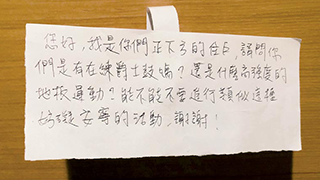 您好，我是你們正下方的住戶，請問你
們是有在練爵士鼓嗎？還是什麼高強度的
地板運動？能不能不要進行類似這種
妨礙安寧的活動，謝謝！